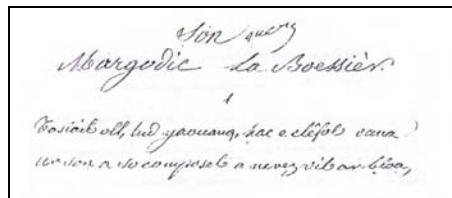 Son
Margodic La Boessièr.
1
Tostait oll, tud yaouanq, hac e clêfot cana
ur son a so composet a nevez vit ar bloa,